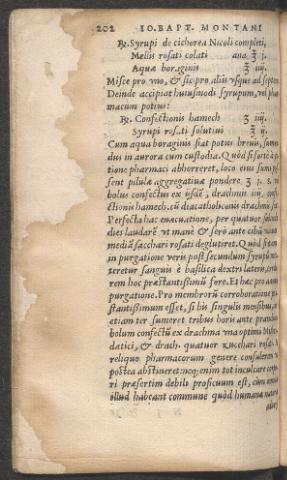 202 IO. BAPT. MONTANI
℞. Syrupi de cichorea Nicoli completi,
Mellis rosati colati ana ℥ j.
Aquæ boraginis ℥ iiij.
Misce pro vno, & sic pro alijs vsque ad septem
Deinde accipiat huiusmodi syrupum, vel phar
macum potius:
℞. Confectionis hamech ℥ iiij.
Syrupi rosati solutiui ℥ ij.
Cum aqua boraginis fiat potus breuis, sumen
dus in aurora cum custodia. Quòd si fortè à po
tione pharmaci abhorreret, loco eius sumi pos
sent pilulæ aggregatiuæ pondere ℥ j. s.
bolus confectus ex drachmis confe
ctionis hamech. cū diacatholiconis drachmis
Perfecta hac euacuatione, per quatuor
dies laudarē vt manè & serò ante cibū
mediā sacchari rosati deglutiret. Quòd si tam
in purgatione veris post secundum syrupū
teretur sanguis è basilica dextri lateris,
rem hoc præstantissimū fore. Et hæc pro
purgatione. Pro membrorū corroboratione
stantissimum esset, si bis singulis mensibus,
etiam ter sumeret tribus horis ante prandium
bolum confectū ex drachma vna optimi
datici, & drach. quatuor zucchari rosati.
reliquo pharmacorum genere consulerem vt
postea abstineret: nō enim tot inculcare
ri præsertim debili proficuum est, cùm omnia
illud habeant commune quòd humana natura